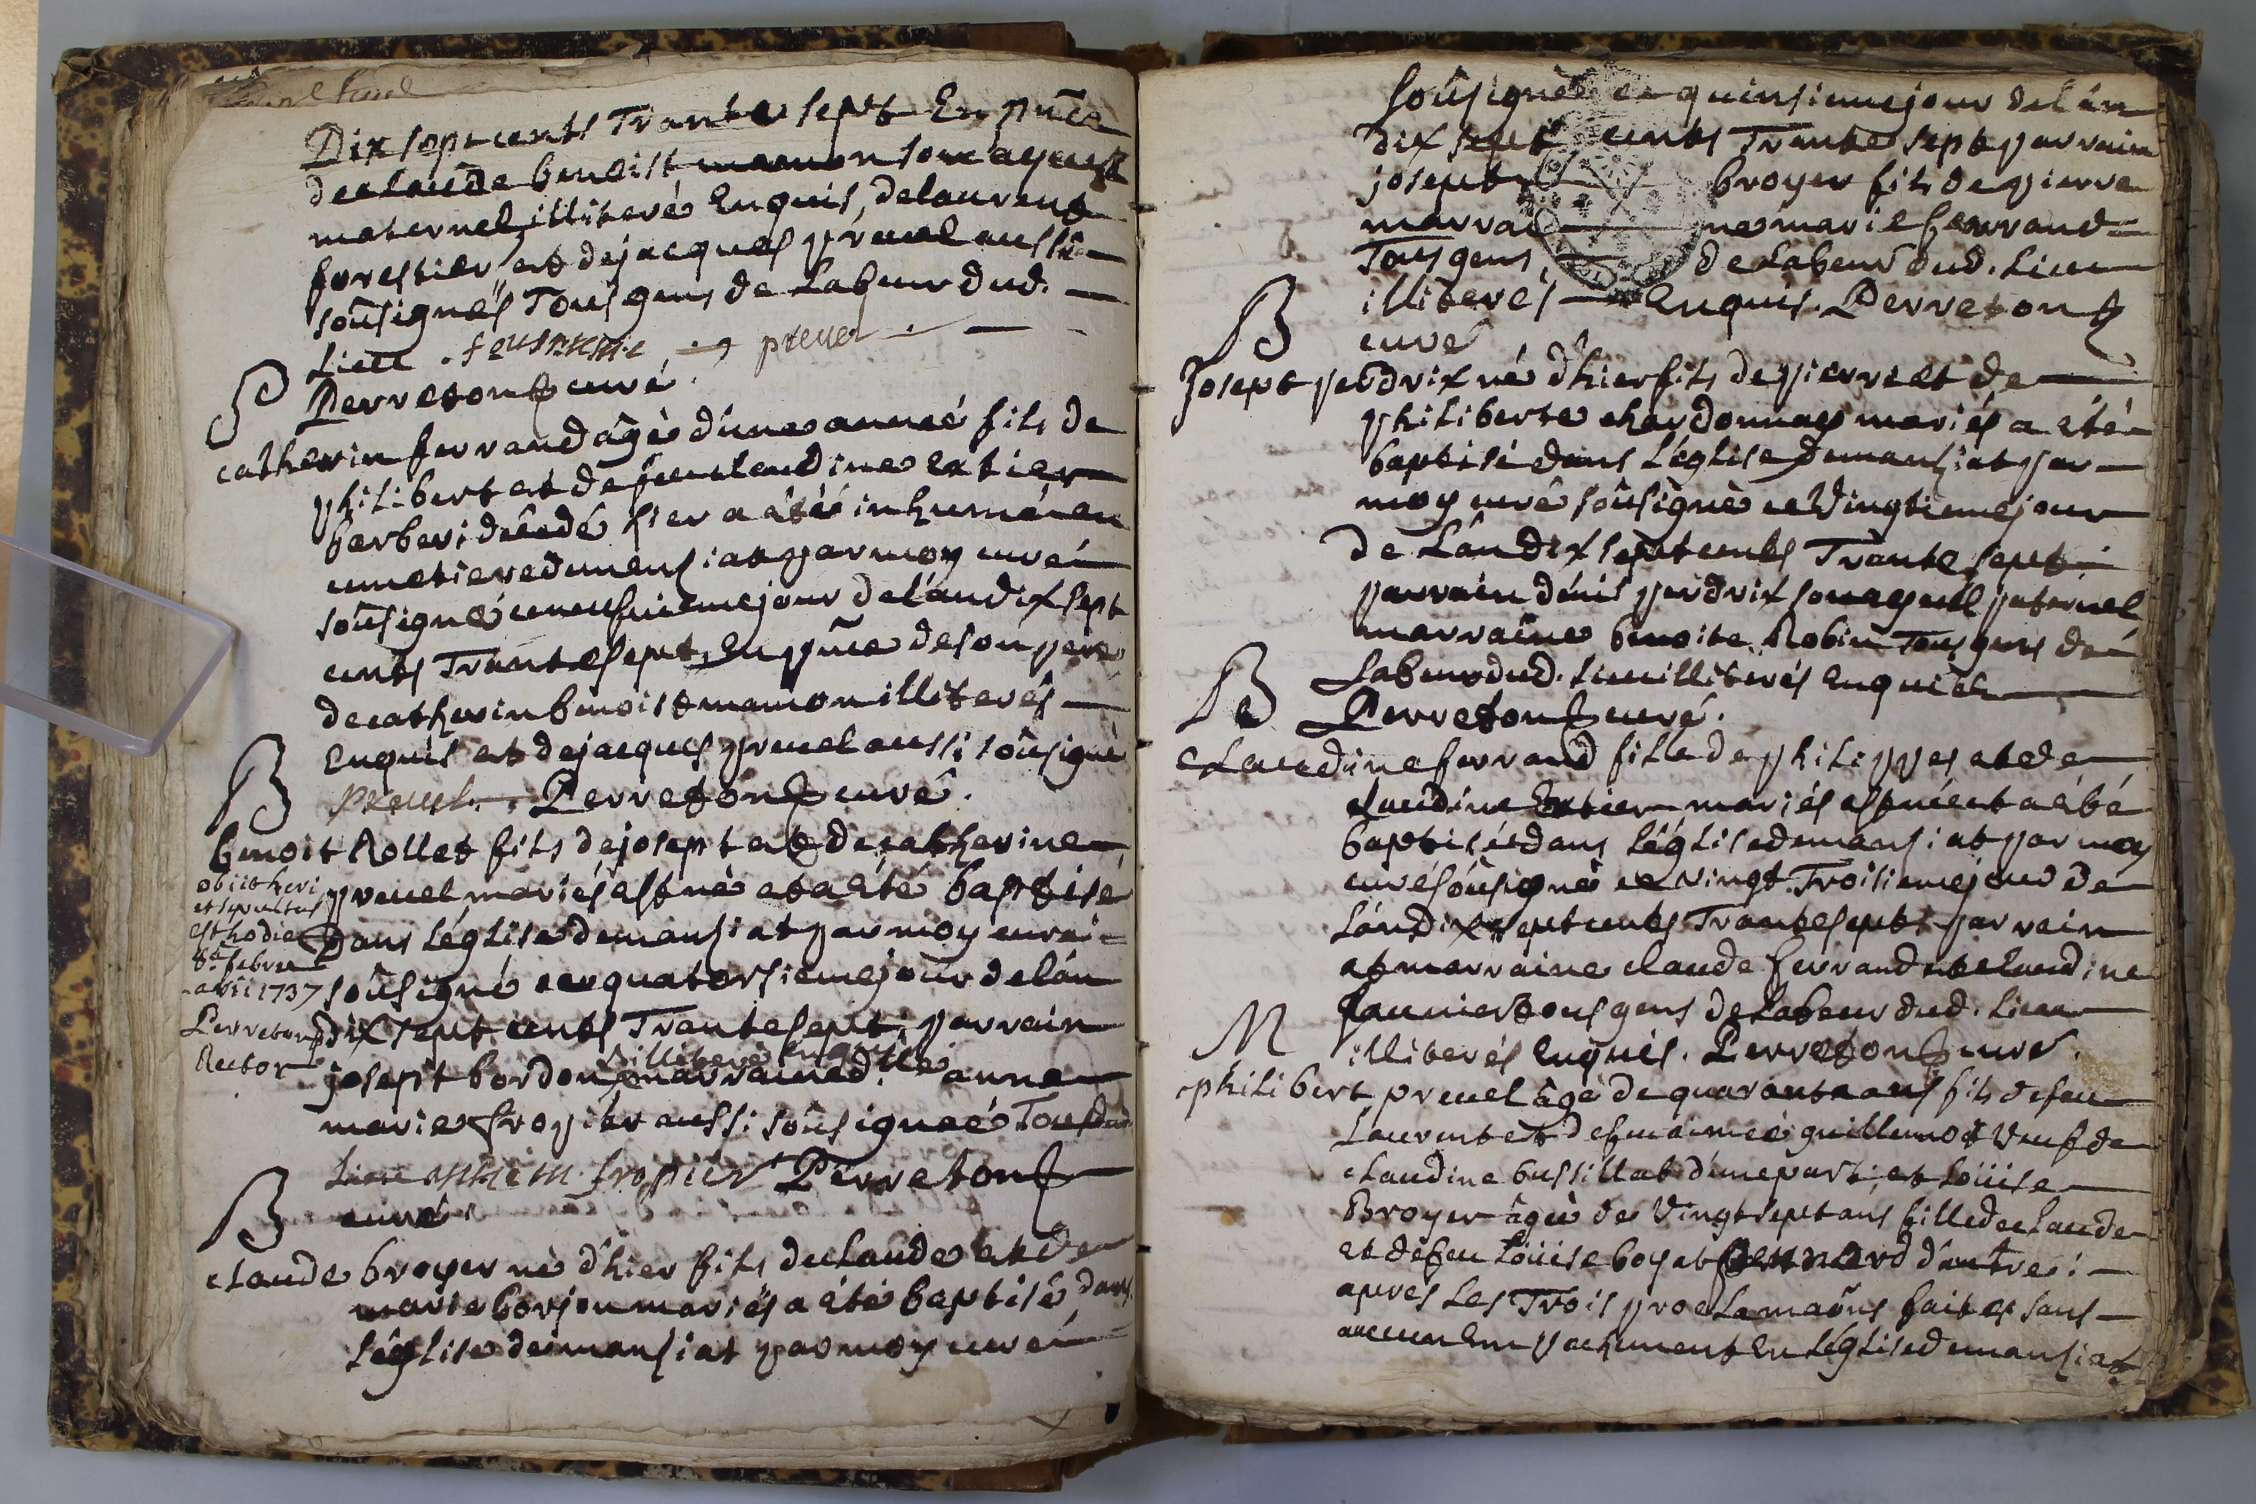 Dix sept cents Trante sept En pñce
de claude benoist mamon son ayeul
maternel illiteré Enquis, de laurent
forestier et de jacques preuel aussi
soûsignés Tous gens de Labeur dud.
Lieu. preuel
Perreton curé.
S
catherin ferrand âgé d'une anneé fils de
philibert et de feu claudine extier
barberi décedé hier a été inhumé au
cimetiere de mansiat par moy curé
soûsigné ce neufvieme jour de l'an dix sept
cents Trante sept, En pñce de son pere
de catherin benoist mamon illiterés
Enquis et de jacques preuel aussi soûsigné
preuel. Perreton curé.
B
benoit Rollet fils de josept et de catherine
preuel mariés est né et a été baptisé
dans L'église de mansiat par moy curé
soûsigné ce quatorsieme jour de l'an
dix sept cents Trante sept. parrain
illiteré Enquis
josept bordon marraine d.lle anne
marie fropier aussi soûsigneé Tous dud.
Lieu anne m fropier Perreton
curé.
obiit heri
et sepultus
est hodie
8a febru
arii 1737
Perreton
Rector
B
claude broyer né d'hier fils de claude et de
marie borjon mariés a été baptisé dans
L'église de mansiat par moy curé
soûsigné ce quinsieme jour de l'an
dix sept cents Trante sept parrain
josept broyer fils de pierre
marraine marie ferrand
Tous gens de Labeur dud. Lieu
illiterés Enquis. Perreton
curé
B
Josept perdrix né d'hier fils de pierre et de
philiberte chardonnay mariés a été
baptisé dans L'église de mansiat par
moy curé soûsigné ce Vingtieme jour
de L'an dix sept cents Trante sept.
parrain dénis perdrix son ayeul paternel
marraine benoite Robin Tous gens de
Labeur dud. Lieu illiterés Enquis
Perreton curé.
B
claudine ferrand fille de philippes et de
claudine Extier mariés est née et a été
baptisée dans L'église de mansiat par moy
curé soûsigné ce vingt Troisieme jour de
L'an dix sept cents Trante sept. parrain
et marraine claude ferrand et claudine
Tous gens de Labeur dud. Lieu
illiterés Enquis. Perreton curé.
M
philibert preuel âgé de quarante ans fils de feu
Laurent et de feu aimeé guillemot Veuf de
claudine bussillat d'une part; et Loüise
Broyer âgée de Vingt sept ans fille de claude
et de feu Loüise boyat d'autre:
aprés Les Trois proclamaõns faites sans
aucun Empechement En L'église de mansiat